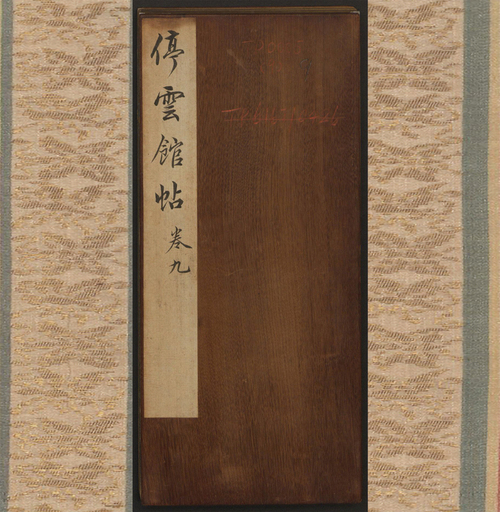 停雲館帖 卷九